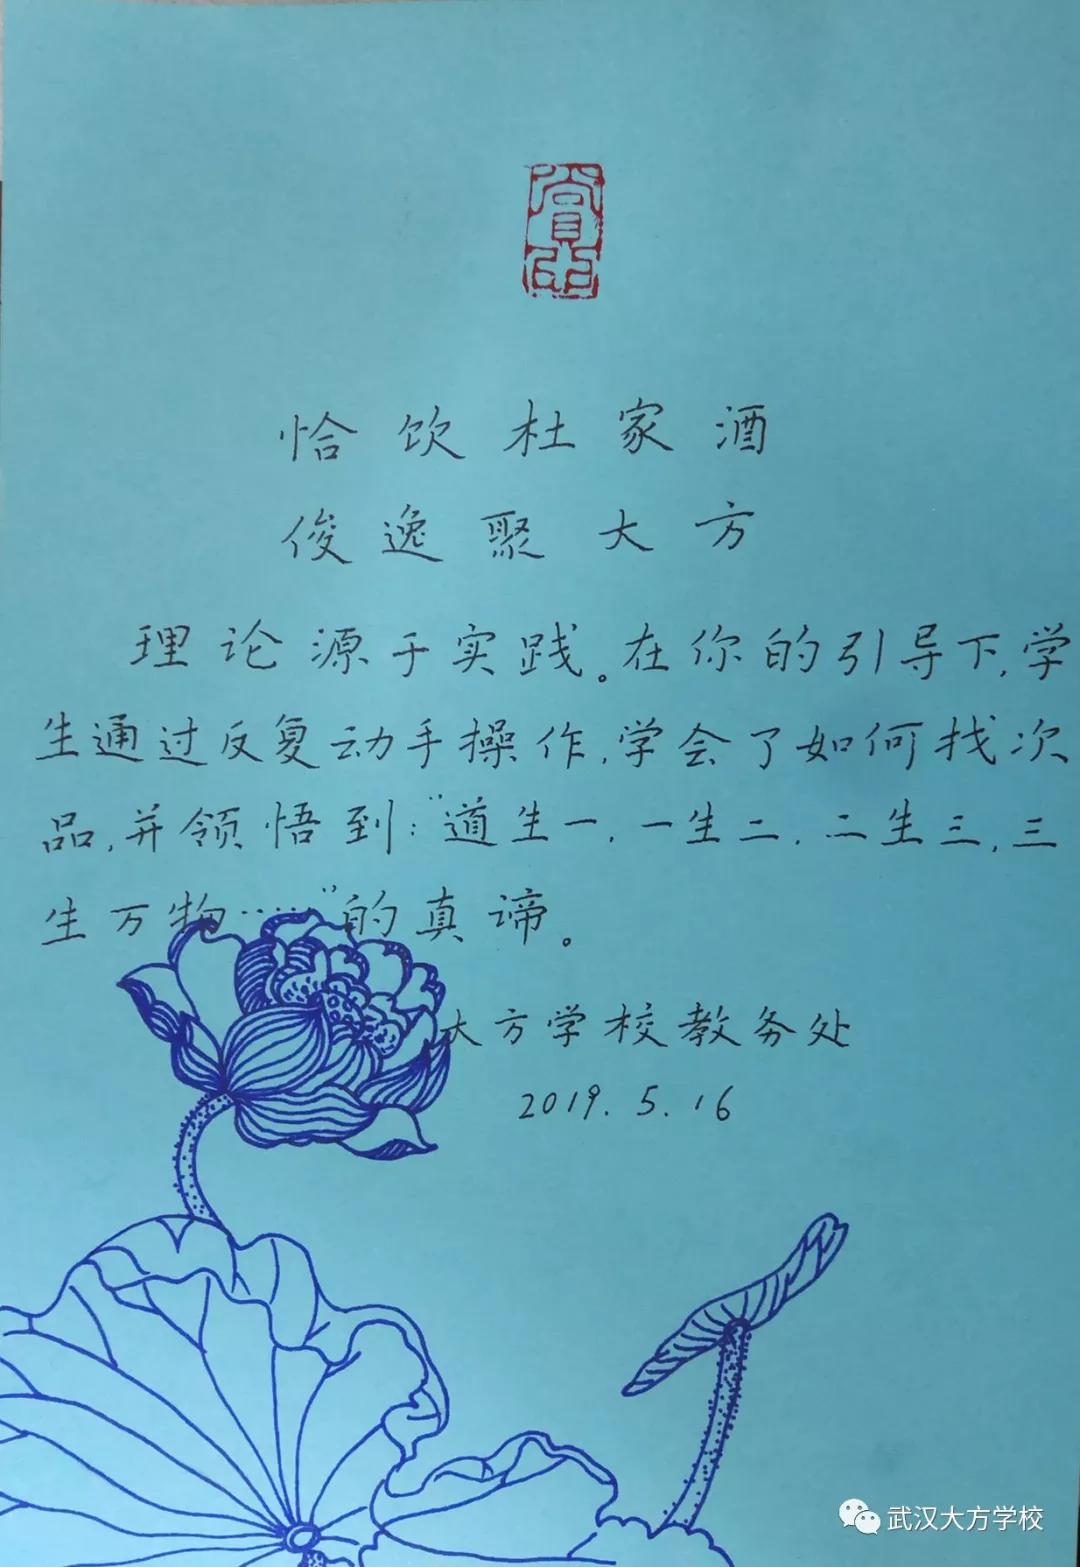 恰饮杜家酒
俊逸聚大方
理论源于实践。在你的引导下,学
生通过反复动手操作,学会了如何找次
品,并领悟到:“道生一,一生二,二生三,三
生万物……”的真谛。
大方学校教务处
2019.5.16
武汉大方学校